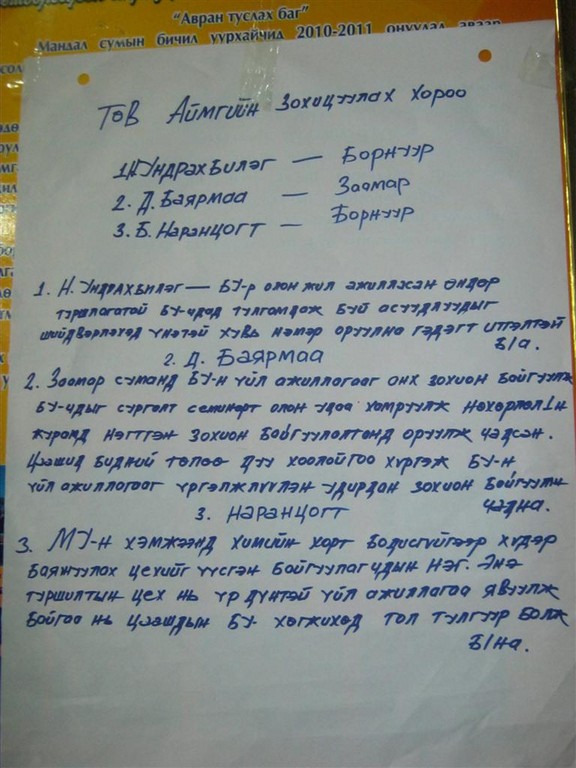 "Авран туслах баг"
Мандал сумын бичил уурхайчид 2010-2011 онуудад аваар
Төв Аймгийн Зохицуулах хороо
1. Н. Ундрахбилэг — Борнуур
2. Д. Баярмаа — Заамар
3. Б. Наранцогт — Борнуур
1. Н. Ундрахбилэг — БУ-р олон жил ажилласан өндөр
туршлагатай БУ-чдад тулгамдаж буй асуудлуудыг
шийдвэрлэхэд үнэтэй хувь нэмэр оруулна гэдэгт итгэлтэй
б/а.
2. Д. Баярмаа
2. Заамар суманд БУ-н үйл ажиллагааг анх зохион байгуулж
БУ-чдыг сургалт семинарт олон удаа хамруулж нөхөрлөл 1н
журамд нэгтгэн зохион байгуулалтанд оруулж чадсан.
Цаашид бидний төлөө дуу хоолойгоо хүргэж БУ-н
үйл ажиллагааг үргэлжлүүлэн удирдан зохион байгуулж
чадна.
3. Наранцогт
3. МУ-н хэмжээнд химийн хорт бодисгүйгээр хүдэр
баяжуулах цехийг үүсгэн байгуулагчдын нэг. Энэ
туршилтын цех нь үр дүнтэй үйл ажиллагаа явуулж
байгаа нь цаашдын БУ хөгжихөд том тулгуур болж
б/на.